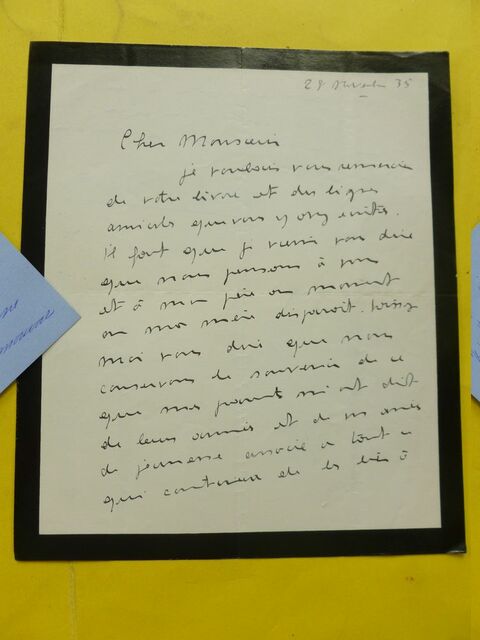 29 novembre 35
Cher Monsieur
je voulais vous remercier
de votre livre et des lignes
amicales que vous y avez écrites.
Il faut que je vienne vous dire
que nous pensons à vous
et à mon père au moment
où ma mère disparaît. Laissez
moi vous dire que nous
conservons le souvenir de ce
que mes parents m'ont dit
de leurs années et de vos années
de jeunesse associé à tout ce
qui continuera de les lier à